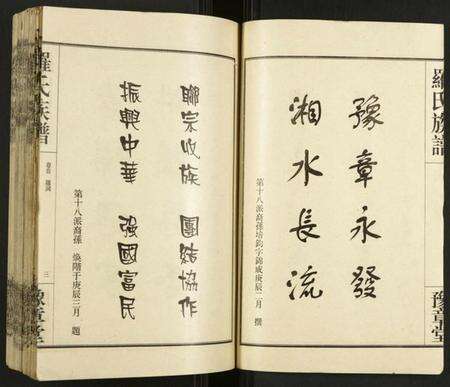 羅氏族譜
豫章堂
豫章永發
湘水長流
第十八派裔孫培鈞字錦成庚辰二月 撰
聯宗收族 團結協作
振興中華 強國富民
第十八派裔孫 煥階于庚辰三月 題
羅氏族譜
三
豫章堂